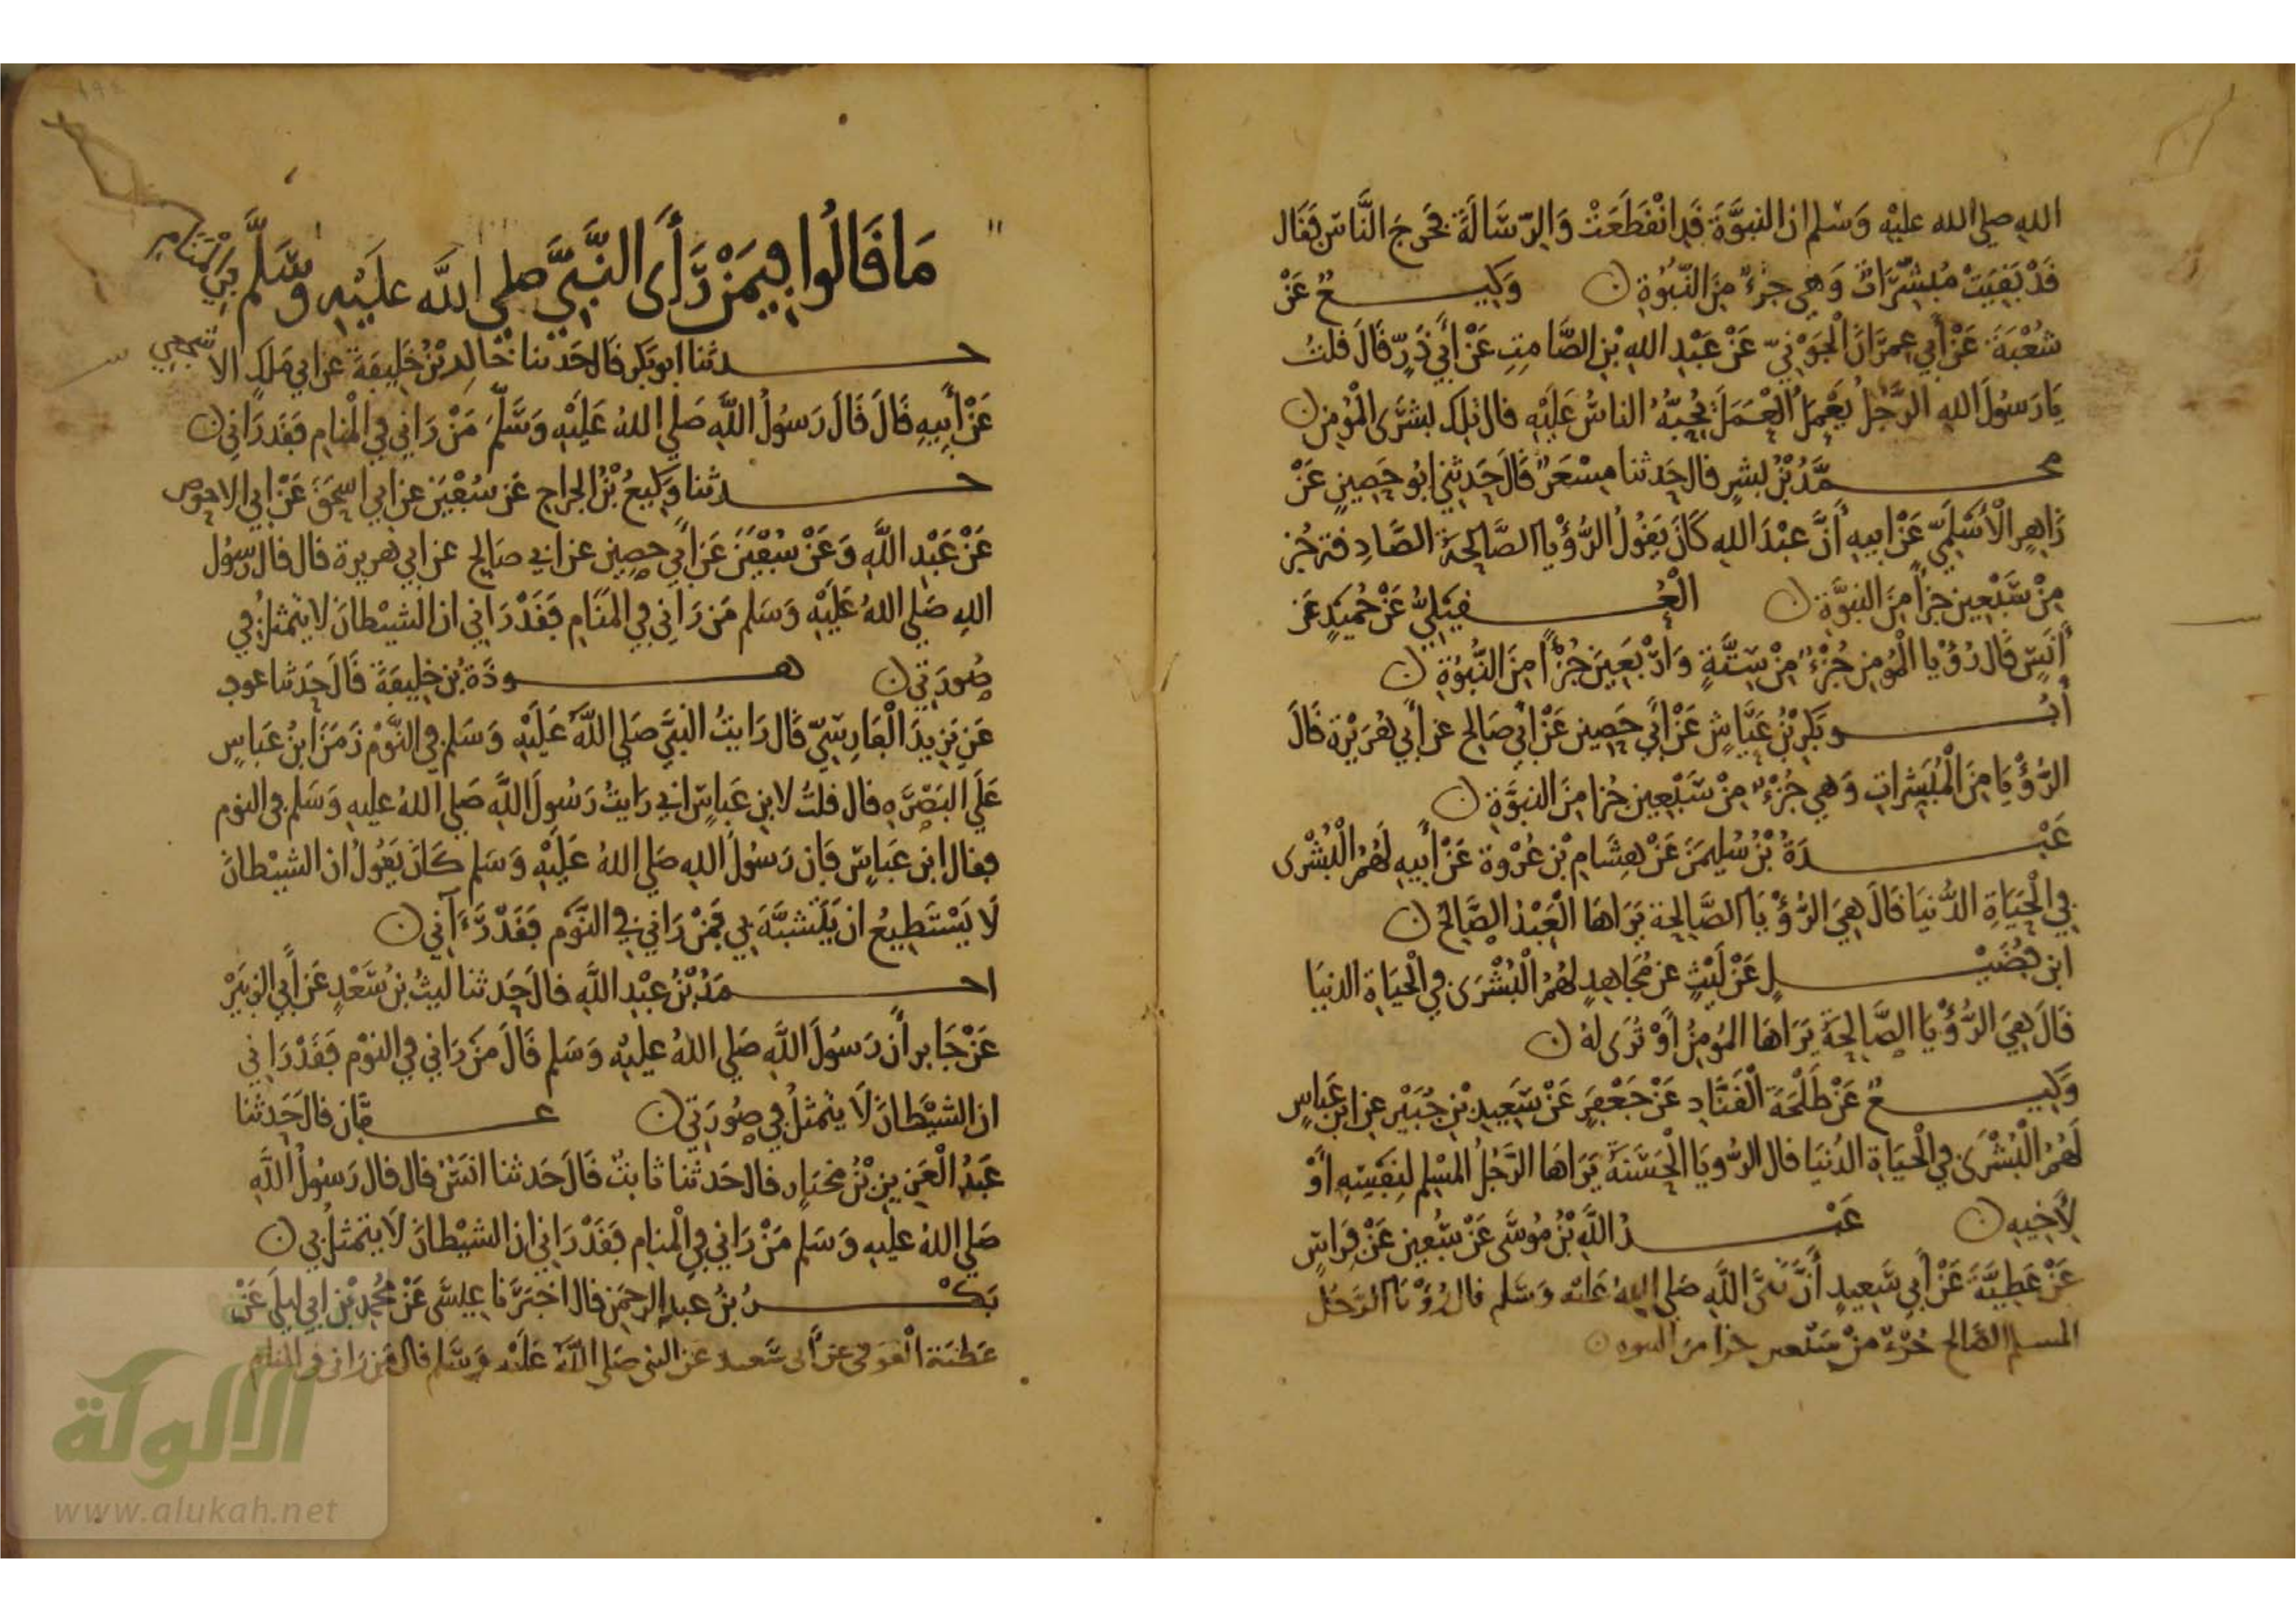 الله صلى الله عليه وسلم ان النبوة قد انقطعت والرسالة فخرج الناس فقال
قد بقيت مبشرات وهي جزء من النبوة ن وكيع عن
شعبة عن أبي عمران الجوني عن عبد الله بن الصامت عن أبي ذر قال قلت
يا رسول الله الرجل يعمل العمل يحبه الناس عليه قال تلك بشرى المؤمن ن
محمد بن بشر قال حدثنا مسعر قال حدثني ابو حصين عن
زاهر الأسلمي عن ابيه أن عبد الله كان يقول الرؤيا الصالحة الصادقة جز
من سبعين جزأ من النبوة ن العقيلي عن حميد عن
أنس قال رؤيا المؤمن جزء من ستة وأربعين جزءا من النبوة ن
أبو بكر بن عياش عن أبي حصين عن أبي صالح عن أبي هريرة قال
الرؤيا من المبشرات وهي جزء من سبعين جزا من النبوة ن
عبدة بن سليمن عن هشام بن عروة عن أبيه لهم البشرى
في الحياة الدنيا قال هي الرؤيا الصالحة يراها العبد الصالح ن
ابن فضيل عن ليث عن مجاهد لهم البشرى في الحياة الدنيا
قال هي الرؤيا الصالحة يراها المومن أو ترى له ن
وكيع عن طلحة القناد عن جعفر عن سعيد بن جبير عن ابن عباس
لهم البشرى في الحياة الدنيا قال الرويا الحسنة يراها الرجل المسلم لنفسه أو
لأخيه ن عبد الله بن موسى عن عن فراس
عن عطية عن أبي سعيد أن نبي الله صلى الله عليه وسلم قال رؤيا الرجل
المسلم الصالح جزء من سبعين جزا من النبوة ن
ما قالوا فيمن رأى النبي صلى الله عليه وسلم في المنام
حدثنا ابو بكر قال حدثنا خالد بن خليفة عن ابي ملك الاشجعي
عن أبيه قال قال رسول الله صلى الله عليه وسلم من راني في المنام فقد راني ن
حدثنا وكيع بن الجراح عن سفين عن ابي اسحق عن ابي الاحوص
عن عبد الله وعن سفين عن أبي حصين عن ابي صالح عن ابي هريرة قال قال رسول
الله صلى الله عليه وسلم من راني في المنام فقد راني ان الشيطان لا يتمثل في
صورتي ن هوذة بن خليفة قال حدثنا عوف
عن يزيد الفارسي قال رايت النبي صلى الله عليه وسلم في النوم زمن ابن عباس
على البصرة قال قلت لابن عباس اني رايت رسول الله صلى الله عليه وسلم في النوم
فقال ابن عباس فان رسول الله صلى الله عليه وسلم كان يقول ان الشيطان
لا يستطيع ان يتشبه بي فمن راني في النوم فقد رءآني ن
احمد بن عبد الله قال حدثنا ليث بن سعد عن أبي الزبير
عن جابر أن رسول الله صلى الله عليه وسلم قال من راني في النوم فقد راني
ان الشيطان لا يتمثل في صورتي ن عفان قال حدثنا
عبد العزيز بن مختار قال حدثنا ثابت قال حدثنا انس قال قال رسول الله
صلى الله عليه وسلم من راني في المنام فقد راني ان الشيطان لا يتمثل بي ن
بكر بن عبد الرحمن قال اخبرنا عيسى عن محمد بن ابي ليلى عن
عطية العوفي عن أبي سعيد عن النبي صلى الله عليه وسلم قال من راني في المنام
الألوكة
www.alukah.net